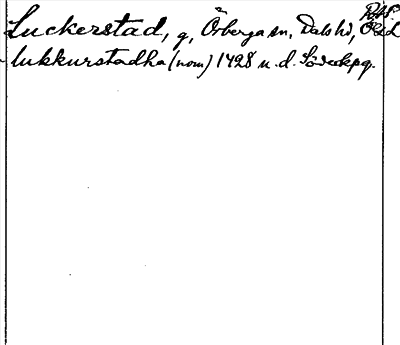 Luckerstad, g, Örberga sn, Dals hd, Ögtl
lukkurstadha (nom) 1428 u. d. Söderkpg.